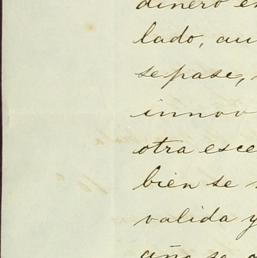 dinero e
lado, au
se pase,
innov
otra esce
bien se
valida y
año se a